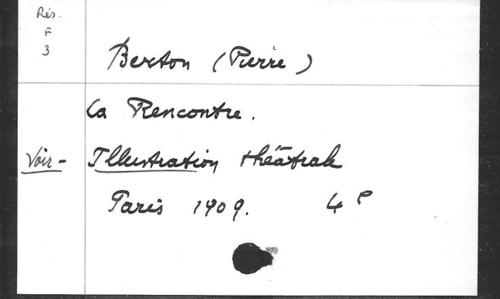 Rés.
F
3
Berton (Pierre)
La Rencontre.
Voir - Illustration théâtrale
Paris 1909. 4º